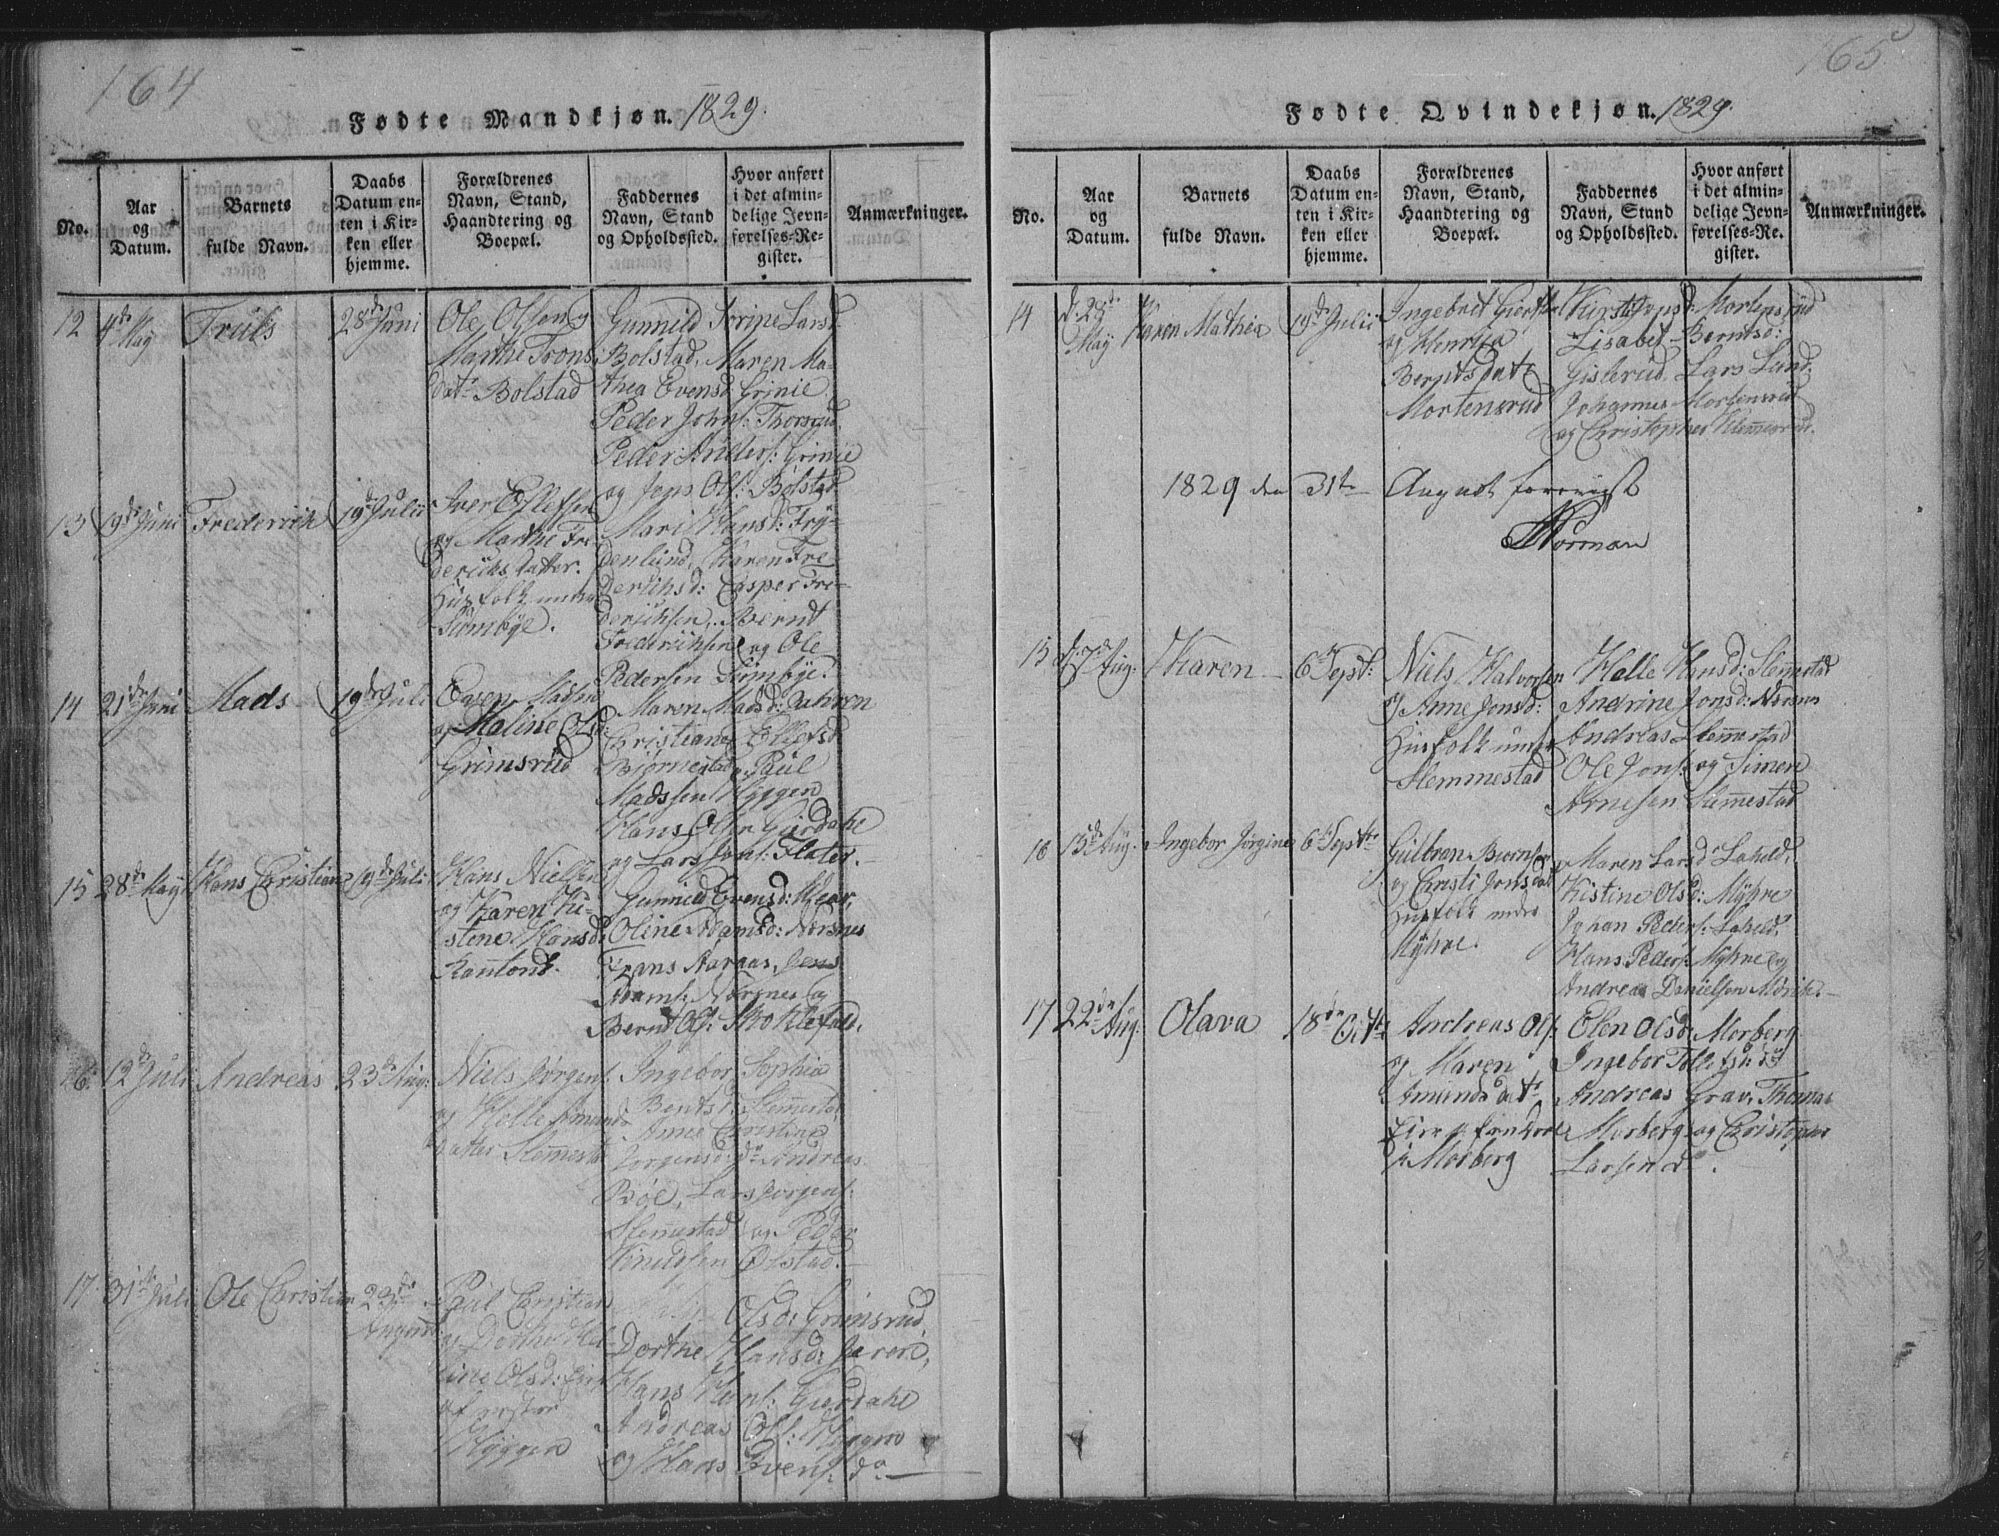 164
Fødte Mandkjøn. 1829.
No.
Aar og Datum.
Barnets fulde Navn.
Daabs Datum enten i Kirken eller hjemme.
Forældrenes Navn, Stand, Haandtering og Boepæl.
Faddernes Navn, Stand og Opholdssted.
Hvor anført i det almindelige Jevnførelses-Register.
Anmærkninger.
12
4de May
Truls
28de Juni
Ole Olsen og
Marthe Trons
datr Bolstad
Gunnild Larsd:
Bolstad, Maren Ma-
thea Evensd Grinie
Peder Johns: Thorsrud
Peder Anders: Grinie
og Jons Ols: Bolstad
13
19de Juni
Frederich
19de Julii
Iver Ellefsen
og Marthe Fre
derichsdatter.
Husfolk under
Sømbye.
Mari Hansd: Fry-
denlund, Karen Fre
derichsd: Casper Fre-
derichsen, Bernt
Frederichsen og Ole
Pedersen Sømbye.
14
21de Juni
Mads
19de Juli
Even Madsen
og Maline Olsd:
Grimsrud
Maren Madsd: Jahren
Christiane Ellefsd
Bjørnestad, Paul
Madssen Hyggen
Hans Olsen Gierdahl
og Lars Jons: Flater.
15
28de May
Hans Christian
19de Juli
Hans Nielsen
og Karen Ki-
stene Hansd:
Gunnild Evensd:
Oline Adamsd: Nærsnes
Frans Aaraas, Jens
Adams: Nærsnes og
Bernt Ols:
16
12de Juli
Andreas
23de Aug:
Niels Jørgens:
og Helle Amunds
datter Slemestd
Ingebor Sophia
Bentsd: Slemestad
Anne Christine
Jørgensd: do Andreas
Bøe, Lars Jørgens:
Slemestad og Peder
Knudsen Øfstad.
17
31te Juli
Ole Christian
23de August
Paul Christian
og Dorthe He-
line Olsd:
Hyggen
Olsd: Grimsrud,
Dorthe Hansd: Jeren,
Hans Gierdahl
Andreas Ols: Hyggen
og Hans Evens: do
165
Fødte Qvindekjøn. 1829.
No.
Aar og Datum.
Barnets fulde Navn.
Daabs Datum enten i Kirken eller hjemme.
Forældrenes Navn, Stand, Haandtering og Boepæl.
Faddernes Navn, Stand og Opholdssted.
Hvor anført i det almindelige Jevnførelses-Register.
Anmærkninger.
14
d: 29de May
Karen Mathia
19de Julii
Ingebret
og
Berntsdatr
Mortensrud
Mortensrud
Lisabet Berntsd:
Gislerud Lars Lund
Johannes Mortensrud
og Christopher Klemesrud.
1829 den 31te August foreviist
Norman
15
d: 7de Aug:
Karen
6te Septr:
Niels Halvorsen
og Anne Jonsd:
Husfolk under
Slemmestad
Helle Hansd: Slemestad
Andrine Jonsd: Nærsnes
Andreas Slemestad
Ole Jons: og Simen
Arnesen Slemestad
16
15de Aug:
Ingebor Jørgine
6te Septr
Gulbran Biørnsen
og Christi Jonsdat
Husfolk under
Myhre.
Maren Larsd Laheld,
Kistine Olsd: Myhre
Johan Peders: Laheld,
Hans Peders: Myhre og
Andreas Danielsen Mørch.
17
22de Aug:
Olava
18de Octr
Andreas Ols:
og Maren
Amundsdatr
Morberg
Elen Olsd: Morberg
Ingebor Tollefsrud
Andreas Grav, Thomas
Morberg og Christopher
Larsen do.